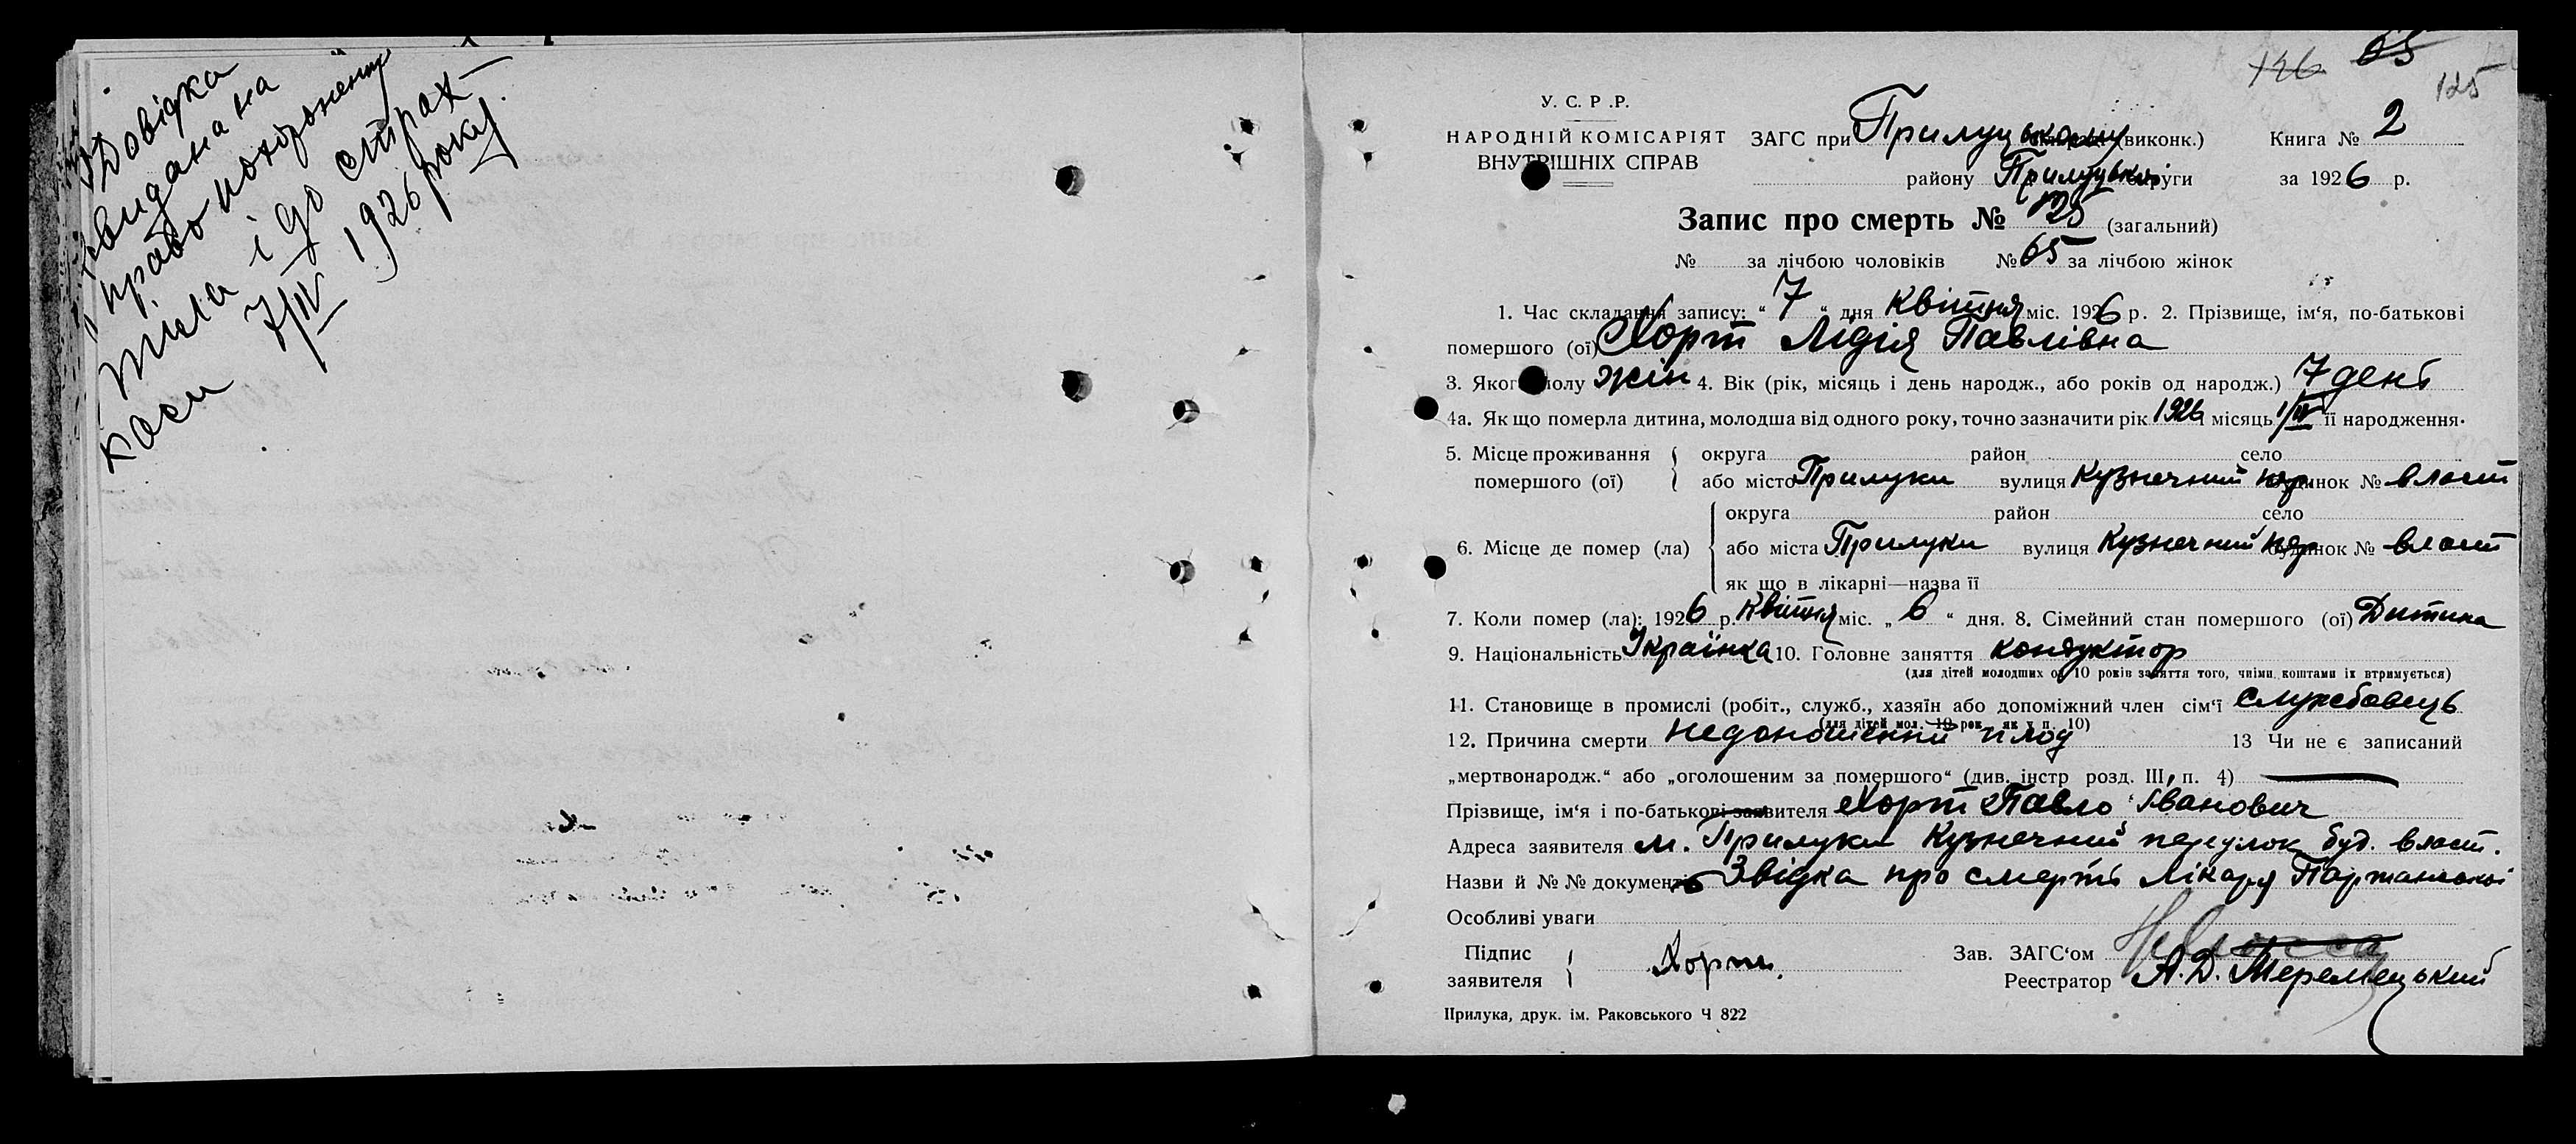 Довідка
видана на
право похоронення
тіла і до страх-
каси 7/IV 1926 року.
126 65
125
У. С. Р. Р.
НАРОДНІЙ КОМІСАРІЯТ ЗАГС при Прилуцькому (виконк.) Книга № 2
ВНУТРІШНІХ СПРАВ
району Прилуцької округи за 1926 р.
Запис про смерть № 125 (загальний)
№ за лічбою чоловіків № 65 за лічбою жінок
1. Час складання запису: " 7 " дня Квітня міс. 1926 р. 2. Прізвище, ім'я, по-батькові
помершого (ої) Хорт Лідія Павлівна
3. Якого полу жін 4. Вік (рік, місяць і день народж., або років од народж.) 7 день
4а. Як що померла дитина, молодша від одного року, точно зазначити рік 1926 і місяць 1/IV її народження.
5. Місце проживання округа район село
помершого (ої) або місто Прилуки вулиця Кузнечний пер. будинок № власт
округа район село
6. Місце де помер (ла) або міста Прилуки вулиця Кузнечний пер будинок № власт
як що в лікарні—назва її
7. Коли помер (ла): 1926 р. Квітня міс. „ 6 " дня. 8. Сімейний стан помершого (ої) Дитина
9. Національність Українка 10. Головне заняття кондуктор
(для дітей молодших од 10 років заняття того, чиїми коштами їх втримується)
11. Становище в промислі (робіт., служб., хазяїн або допоміжний член сім'ї службовець
(для дітей мол. 10 рок. як у п. 10)
12. Причина смерти недоношений плод 13 Чи не є записаний
„мертвонародж." або „оголошеним за помершого" (див. інстр розд. III, п. 4) —
Прізвище, ім'я і по-батькові заявителя Хорт Павло Іванович
Адреса заявителя м. Прилуки Кузнечний переулок буд. власт.
Назви й №№ документів Звідка про смерть лікаря
Особливі уваги
Підпис Зав. ЗАГС'ом
заявителя Хорт. Реестратор А. Д. Теремецький
Прилука, друк. ім. Раковського Ч 822